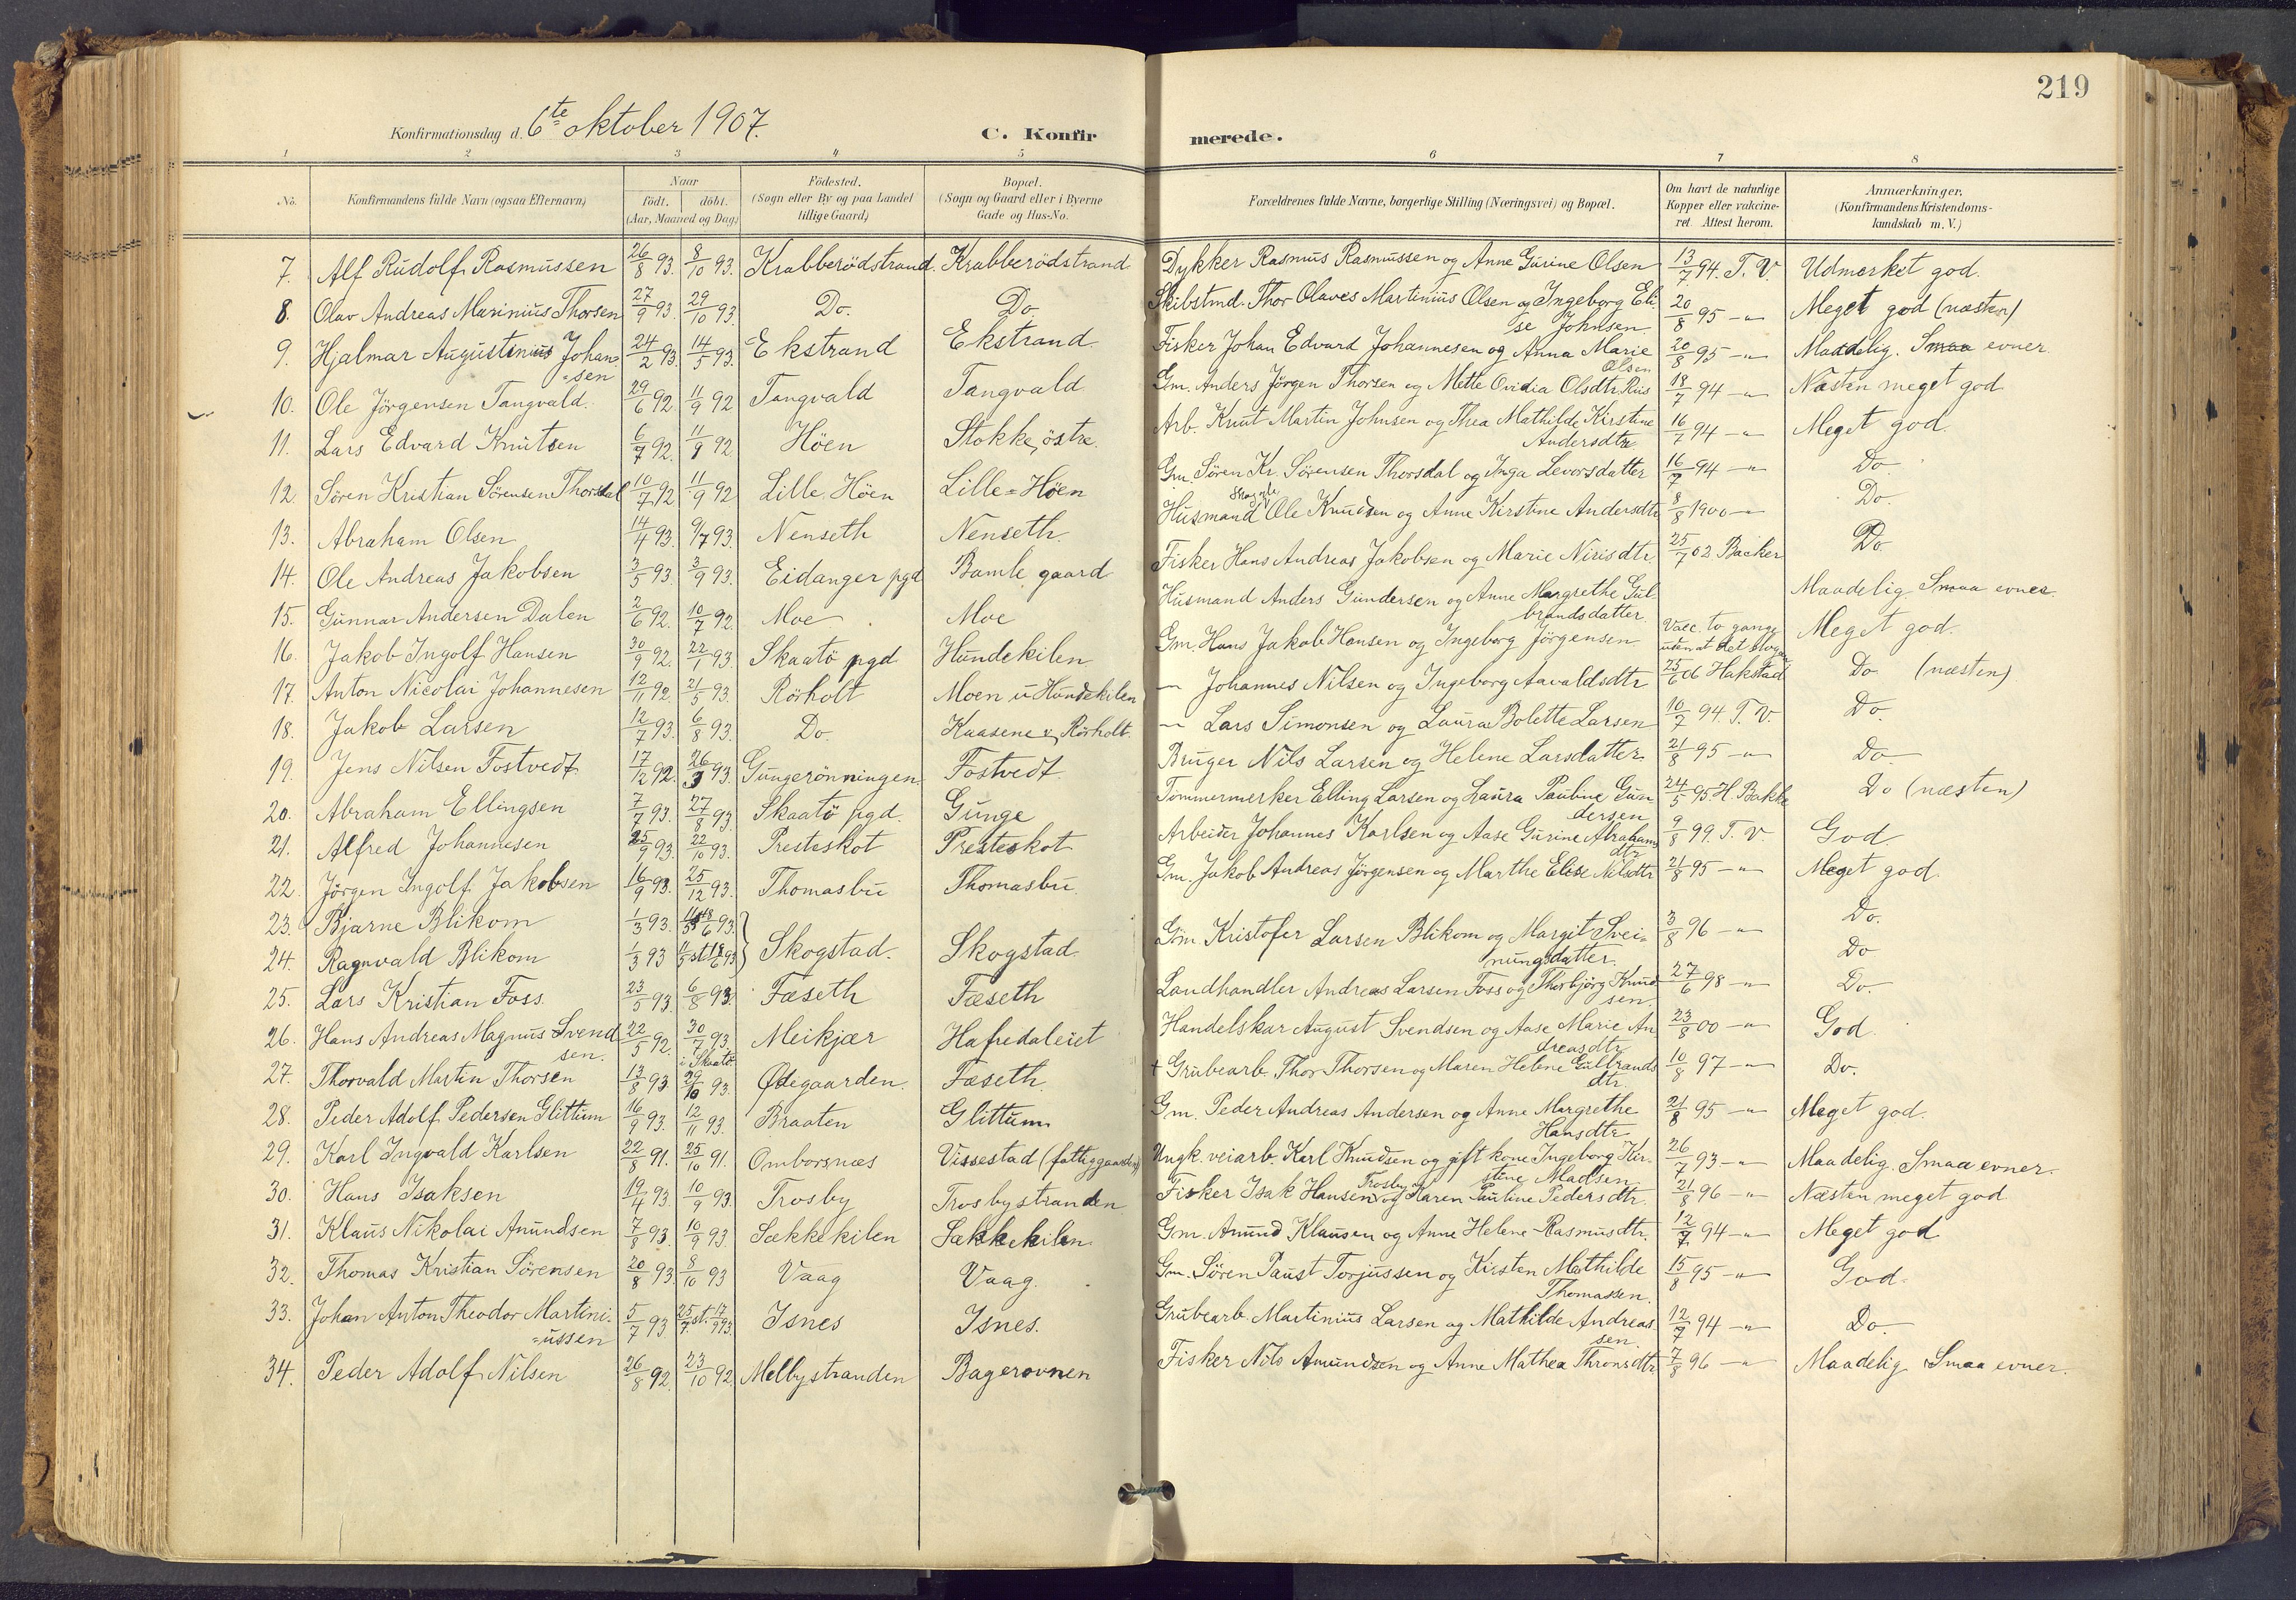 219
Konfirmationsdag d. 6te oktober 1907.
C. Konfirmerede.
1 2 3 4 5 6 7 8
No. Konfirmandens fulde Navn (ogsaa Efternavn) Naar født. døbt. (Aar, Maaned og Dag) Födested. (Sogn eller By og paa Landet tillige Gaard) Bopæl. (Sogn og Gaard eller i Byerne Gade og Hus-No. Forældrenes fulde Navne, borgerlige Stilling (Næringsvei) og Bopæl. Om havt de naturlige Kopper eller vakcineret. Attest herom. Anmærkninger. (Konfirmandens Kristendomskundskab m. V.)
7. Alf Rudolf Rasmussen 26/8 93. 8/10 93. Krabberödstrand. Krabberödstrand Dykker Rasmus Rasmussen og Anne Gurine Olsen 13/7 94. T. V. Udmerket god.
8. Olav Andreas Marinius Thorsen 27/9 93. 29/10 93. Do. Do. Skibstmd. Thor Olaves Martinius Olsen og Ingeborg Elise Johnsen 20/8 95 -"- Meget god (næsten)
9. Hjalmar Augustinius Johansen 24/2 93. 14/5 93. Ekstrand Ekstrand Fisker Johan Edvard Johannesen og Anna Marie Olsen 20/8 95 -"- Maadelig. Smaa evner.
10. Ole Jörgensen Tangvald. 29/6 92. 11/9 92 Tangvald Tangvald Gm. Anders Jörgen Thorsen og Mette Ovidia Olsdtr. Riis 18/7 94 -"- Næsten meget god
11. Lars Edvard Knutsen 6/7 92. 11/9 92 Höen Stokke, östre. Arb. Knut Martin Johnsen og Thea Mathilde Kirstine Andersdtr 16/7 94 -"- Meget god.
12. Sören Kristian Sörensen Thorsdal 10/7 92 11/9 92 Lille Höen Lille=Höen Gm. Sören Kr. Sörensen Thorsdal og Inga Levorsdatter 16/7 94 -"- Do.
13. Abraham Olsen 14/4 93. 9/7 93. Nenseth Nenseth. Husmand Ole Knudsen og Anne Kirstine Andersdtr 8/8 1900 -"- Do.
14. Ole Andreas Jakobsen 3/5 93. 3/9 93. Eidanger pgd Bamle gaard Fisker Hans Andreas Jakobsen og Marie Nirisdtr. 25/7 02 Backer Do
15. Gunnar Andersen Dalen 2/6 92. 10/7 92. Moe Moe Husmand Anders Gundersen og Anne Margrethe Gulbrandsdatter Maadelig. Smaa evner.
16. Jakob Ingolf Hansen 30/9 92. 22/1 93. Skaatö pgd Hundekilen Gm. Hans Jakob Hansen og Ingeborg Jörgensen Vacc. to gange uten at det slog an Meget god.
17. Anton Nicolai Johannesen 12/11 92. 21/5 93. Rörholt Moen u. Hundekilen — Johannes Nilsen og Ingeborg Aavaldsdtr 25/6 06 Hakstad Do (næsten)
18. Jakob Larsen 12/7 93. 6/8 93. Do. Kaasene u. Rörholt. — Lars Simonsen og Laura Bolette Larsen 10/7 94. T. V. Do.
19. Jens Nilsen Fostvedt 17/12 92. 26/3 93. Gungerönningen Fostvedt. Bruger Nils Larsen og Helene Larsdatter 21/8 95 -"- Do
20. Abraham Ellingsen 7/7 93. 27/8 93. Skaatö pgd. Gunge Tömmermerker Elling Larsen og Laura Pauline Gundersen 24/5 95 H. Bakke Do (næsten)
21. Alfred Johannesen 25/9 93. 22/10 93. Presteskot Presteskot Arbeider Johannes Karlsen og Aase Gurine Abrahamsdtr 9/8 99. T. V. God
22. Jörgen Ingolf Jakobsen 16/9 93. 25/12 93. Thomasbu Thomasbu. Gm. Jakob Andreas Jörgensen og Marthe Elise Nilsdtr 21/8 95 -"- Meget god.
23. Bjarne Blikom 1/3 93. 11/5 st 18/6 93. Skogstad. Skogstad. Gm. Kristofer Larsen Blikom og Margit Sveinungsdatter. 3/8 96 -"- Do.
24. Ragnvald Blikom 1/3 93 11/5 st 18/6 93 Do
25. Lars Kristian Foss. 23/5 93. 6/8 93. Fæseth Fæseth Landhandler Andreas Larsen Foss og Thorbjörg Knudsen. 27/6 98 -"- Do.
26. Hans Andreas Magnus Svendsen. 22/5 92. 30/7 93. i Skaatö Meikjær Hafredaleiet Handelskar August Svendsen og Aase Marie Andreasdtr 23/8 00 -"- God.
27. Thorvald Martin Thorsen 13/8 93. 29/10 93. Ødegaarden. Fæseth. † Grubearb. Thor Thorsen og Maren Helene Gulbrandsdtr. 10/8 97 -"- Do.
28. Peder Adolf Pedersen Glittum 16/9 93. 12/11 93. Braaten Glittum Gm. Peder Andreas Andersen og Anne Margrethe Hansdtr. 21/8 95 -"- Meget god.
29. Karl Ingvald Karlsen 22/8 91. 25/10 91. Omborsnæs Vissestad (fattiggaarden) Ungk. veiarb. Karl Knudsen og gift kone Ingeborg Kirstine Madsen 26/7 93 -"- Maadelig. Smaa evner.
30. Hans Isaksen 19/4 93. 10/9 93. Trosby Trosbystranden Fisker Isak Hansen Trosby og Karen Pauline Pedersdtr. 21/8 96 -"- Næsten meget god
31. Klaus Nikolai Amundsen 7/8 93. 10/9 93. Sækkekilen Sækkekilen Gm. Amund Klausen og Anne Helene Rasmusdtr. 12/7 94 -"- Meget god
32. Thomas Kristian Sörensen 20/8 93. 8/10 93 Vaag Vaag. Gm. Sören Paust Torjussen og Kirsten Mathilde Thomassen. 15/8 95 -"- God.
33. Johan Anton Theodor Martiniussen 5/7 93 25/7. st. 17/9 93. Isnes Isnes. Grubearb. Martinius Larsen og Mathilde Andreassen. 12/7 94 -"- Do.
34. Peder Adolf Nilsen 26/8 92. 23/10 92. Melbystranden Bagerovnen Fisker Nils Amundsen og Anne Mathea Thronsdtr. 7/8 96 -"- Maadelig. Smaa evner.